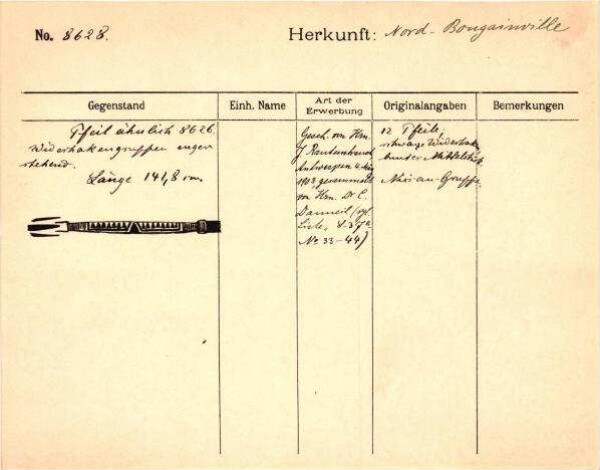 No. 8628.
Herkunft: Nord-Bougainville
Gegenstand
Einh. Name
Art der
Erwerbung
Originalangaben
Bemerkungen
Pfeil ähnlich 8626.
Widerhakengruppen enger
stehend.
Länge 141,8 cm.
Gesch. von Hrn.
J. Rautenstrauch
Antwerpen
1903, gesammelt
von Hrn. Dr C.
Danneil (vgl.
Liste, S. 37a
No 33-44)
12 Pfeile,
schwarze Widerhak.
bunter Mittelstück
Nissan-Gruppe.